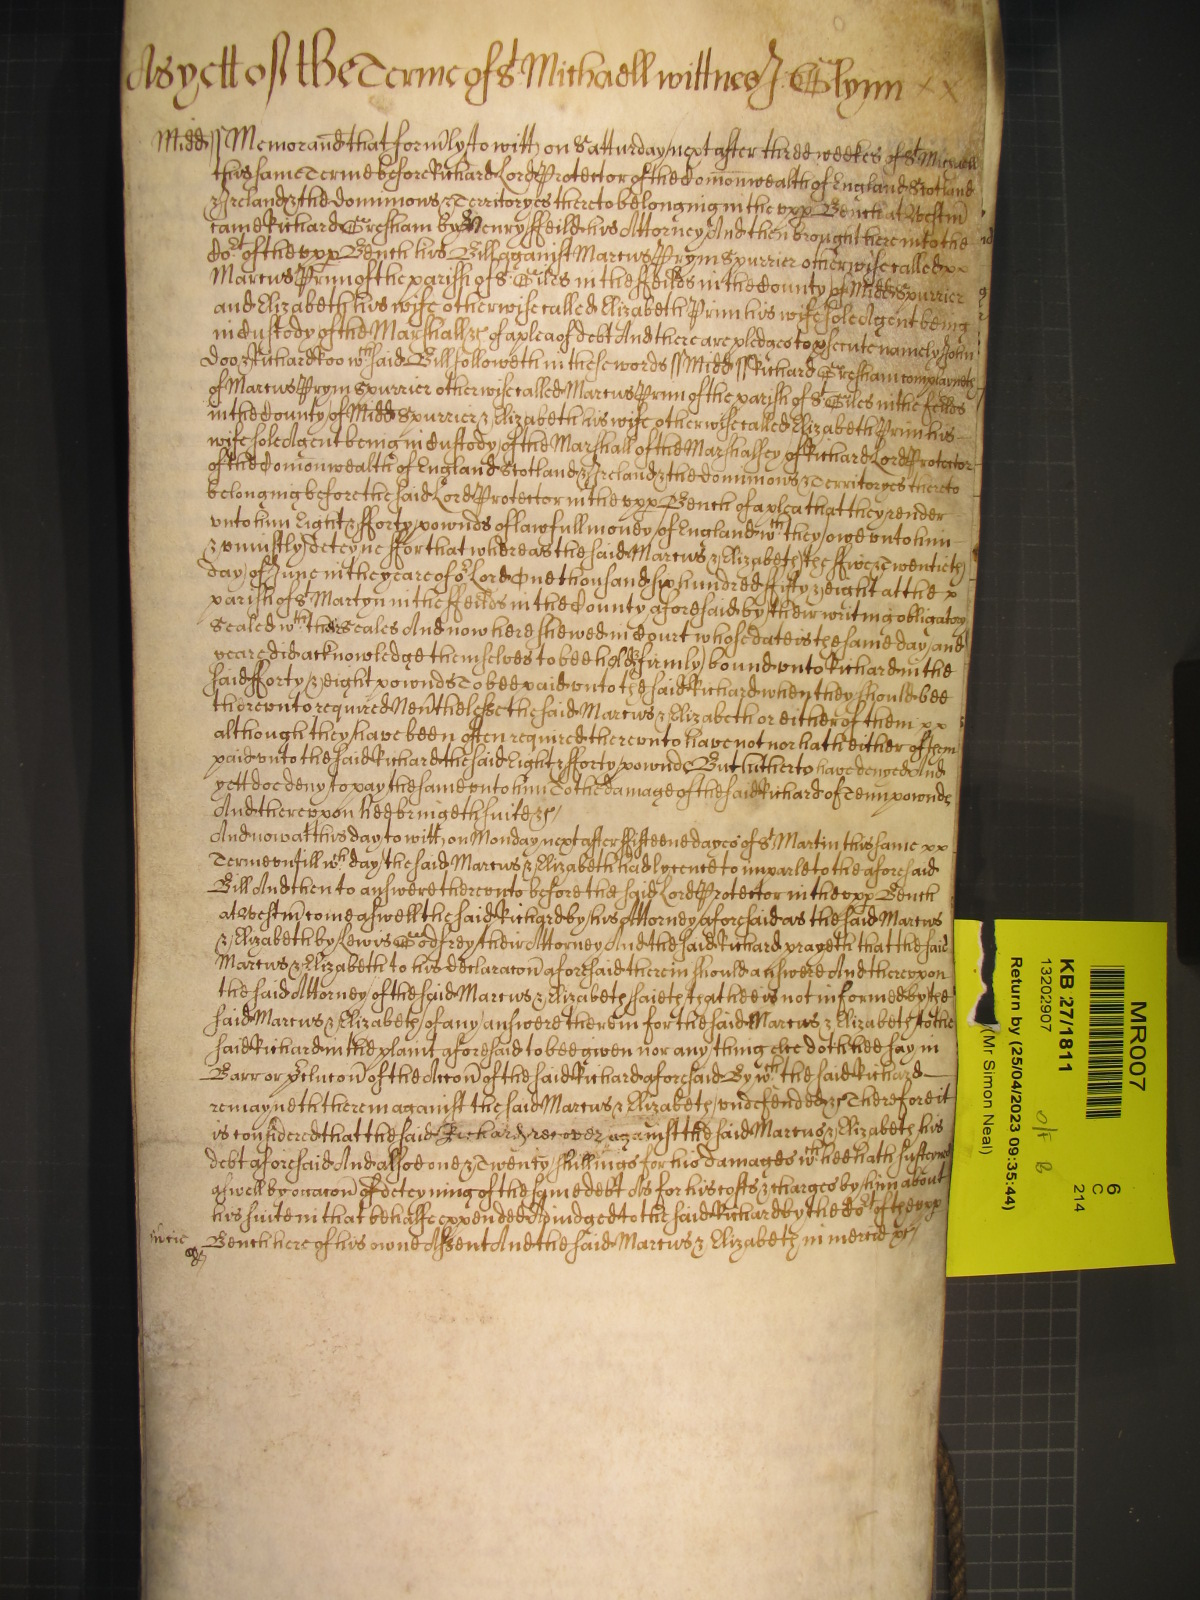 As yett of the Terme of St Michaell wittnes J. Glynn x x
Midd ss Memorand that formly to witt on Satturday next after three weekes of St Michaell
this same Terme before Richard Lord Protector of the Comonwealth of England Scotland
& Ireland & the dominions & Territoryes thereto belonging in the vpp Bench at Westm
came Richard Gresham by Henry ffeild his Attorney And then brought here into the
Cort of the vpp Bench his Bill against Marcus Prym Spurrier otherwise called xx
Marcus Prim of the parish of St Giles in the ffeilds in the County of Midd Spurrier
and Elizabeth his wife otherwise called Elizabeth Prim his wife sole Agent being
in Custody of the Marshall &c of a plea of debt And there are pledges to psecute namely John
Doo & Richard Roo wch said Bill followeth in these words ss Midd ss Richard Gresham complayneth
of Marcus Prym Spurrier otherwise called Marcus Prim of the parish of St Giles in the feilds
in the County of Midd Spurrier & Elizabeth his wife otherwise called Elizabeth Prim his
wife sole Agent being in Custody of the Marshall of the Marshallsey of Richard Lord Protector
of the Comonwealth of England Scotland & Ireland & the dominions & Territoryes thereto
belonging before the said Lord Protector in the vpp Bench of a plea that they render
vnto him Eight & fforty pownds of lawfull money of England wch they owe vnto him
& vniustly deteyne ffor that whereas the said Marcus & Elizabeth the ffive & Twentieth
day of June in the yeare of or Lord One thousand six hundred ffifty & eight at the p
parish of St Martyn in the ffeilds in the County aforesaid by their writing obligatory
Sealed wth their Seales And now here shewed in Court whose date is the same day and
yeare did acknowledge themselves to bee held & firmly bound vnto Richard in the
said fforty & eight pownds To bee paid vnto the said Richard when they should bee
therevnto required Neuthelesse the said Marcus & Elizabeth or either of them xx
although they have been often required therevnto have not nor hath either of them
paid vnto the said Richard the said Eight & fforty pownds But hitherto have denyed And
yett doe deny to pay the same vnto him To the damage of the said Richard of Tenn pownds
And therevpon hee bringeth suite &c
And now at this day to witt on Monday next after ffifteene dayes of St Martin this same xx
Terme vntill wch day the said Marcus & Elizabeth had lycence to imparle to the aforesaid
Bill And then to answere therevnto before the said Lord Protector in the vpp Bench
at Westm come aswell the said Richard by his Attorney aforesaid as the said Marcus
& Elizabeth by Lewis Godfrey their Attorney And the said Richard prayeth that the said
Marcus & Elizabeth to his declaracon aforesaid therein should answere And therevpon
the said Attorney of the said Marcus & Elizabeth saieth that hee is not informed by the
said Marcus & Elizabeth of any answere therein for the said Marcus & Elizabeth to the
said Richard in the plaint aforesaid to bee given nor any thing else doth hee say in
Barr or pclucon of the Accon of the said Richard aforesaid By wch the said Richard
remayneth therein against the said Marcus & Elizabeth vndefended &c Therefore it
is considered that the said Richard recover against the said Marcus & Elizabeth his
debt aforesaid And alsoe one & Twenty shillings for his damages wch hee hath susteyned
aswell by occacon of deteyning of the same debt As for his costs & charges by him about
his suite in that behalfe expended Adiudged to the said Richard by the Cort of the vpp
Bench here of his owne Assent And the said Marcus & Elizabeth in mercie &c
MR007
KB 27/1811
13202907
Return by (25/04/2023 09:35:44)
(Mr Simon Neal)
6
C
214